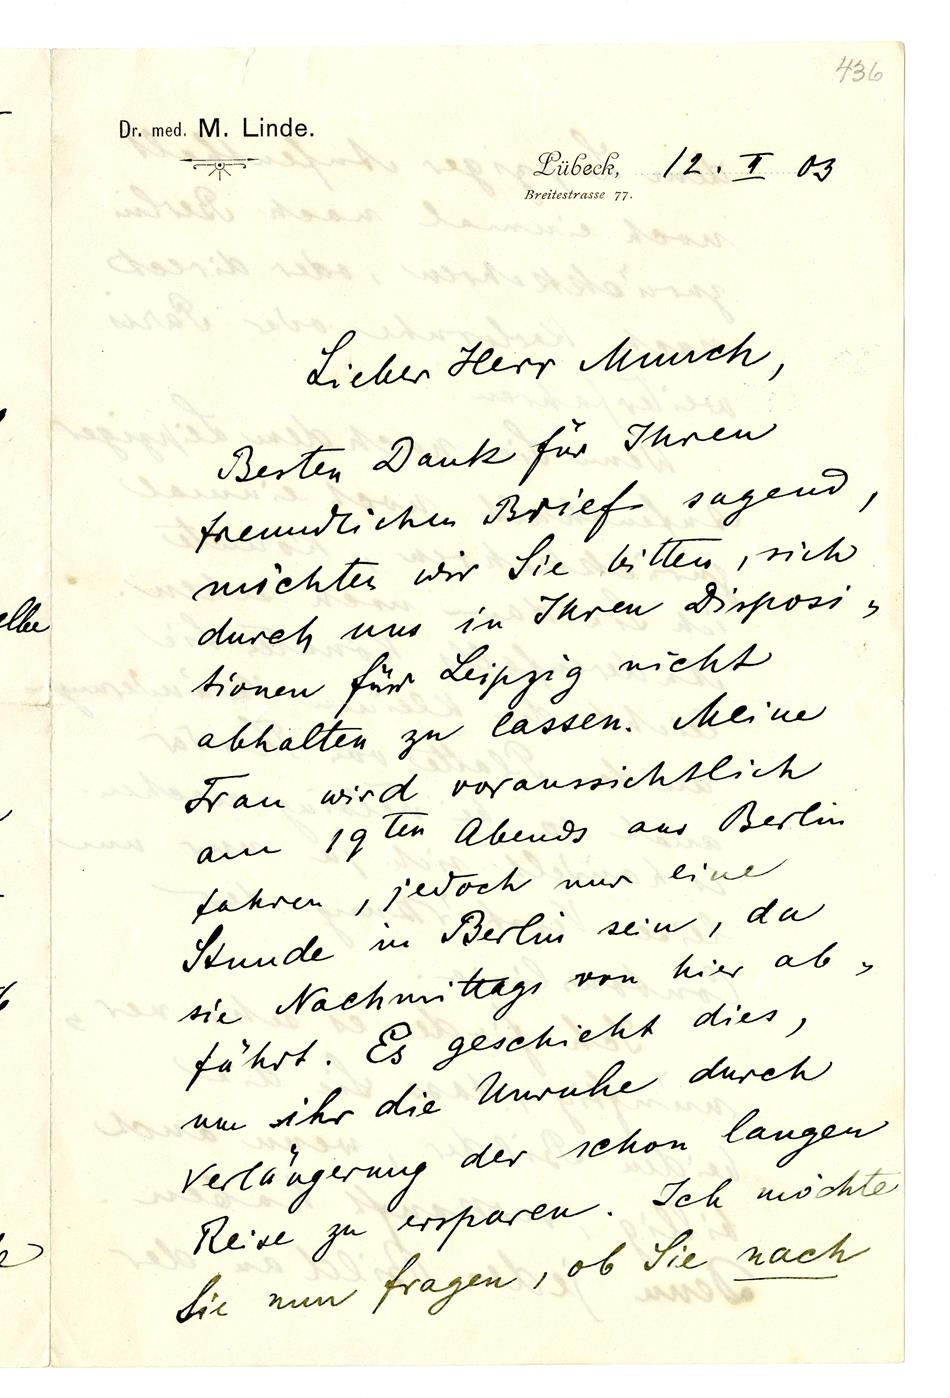 436
Dr. med. M. Linde.
Lübeck, 12. II 03
Breitestrasse 77.
Lieber Herr Munch,
Besten Dank für Ihren
freundlichen Brief sagend,
möchten wir Sie bitten, sich
durch uns in Ihren Disposi„
tionen für Leipzig nicht
abhalten zu lassen. Meine
Frau wird voraussichtlich
am 19ten Abends aus Berlin
fahren, jedoch nur eine
Stunde in Berlin sein, da
sie Nachmittags von hier ab„
fährt. Es geschieht dies,
um ihr die Unruhe durch
Verlängerung der schon langen
Reise zu ersparen. Ich möchte
Sie nun fragen, ob Sie nach